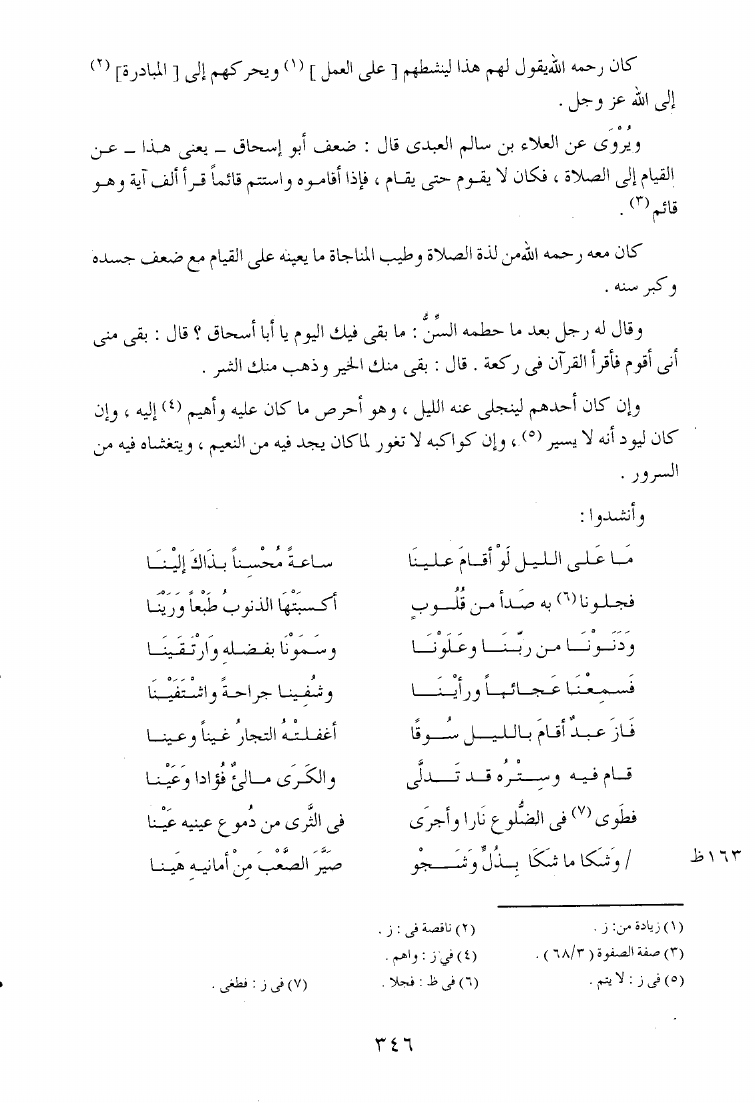 كان رحمه الله يقول لهم هذا لينشطهم [ على العمل ] (١) ويحركهم إلى [ المبادرة ] (٢)
إلى الله عز وجل .
ويُرْوَى عن العلاء بن سالم العبدى قال : ضعف أبو إسحاق ــ يعنى هذا ــ عن
القيام إلى الصلاة ، فكان لا يقوم حتى يقام ، فإذا أقاموه واستتم قائماً قرأ ألف آية وهو
قائم (٣) .
كان معه رحمه الله من لذة الصلاة وطيب المناجاة ما يعينه على القيام مع ضعف جسده
وكبر سنه .
وقال له رجل بعد ما حطمه السِّنُّ : ما بقى فيك اليوم يا أبا أسحاق ؟ قال : بقى منى
أنى أقوم فأقرأ القرآن فى ركعة . قال : بقى منك الخير وذهب منك الشر .
وإن كان أحدهم لينجلى عنه الليل ، وهو أحرص ما كان عليه وأهيم (٤) إليه ، وإن
كان ليود أنه لا يسير (٥) ، وإن كواكبه لا تغور لما كان يجد فيه من النعيم ، ويتغشاه فيه من
السرور .
وأنشدوا :
مَا عَلى الليل لَوْ أقامَ علينَا ساعةً مُحْسِناً بذَاكَ إليْنَا
فجلونا (٦) به صَدَأ من قُلُوبٍ أكسبَتْهَا الذنوبُ طَبْعاً وَرَيْنَا
وَدَنَوْنَا من ربِّنَا وعَلَوْنَا وسَمَوْنَا بفضلهِ وَارْتَقَينَا
فَسمِعْنَا عَجائباً ورأيْنَا وشُفِينا جراحةً واشْتَفَيْنَا
فَازَ عبدٌ أقامَ بالليلِ سُوقًا أغفلتْهُ التجارُ غيناً وعينا
قام فيهِ وسِتْرُه قد تَدلَّى والكَرَى مالئٌ فُؤادا وَعَيْنا
فطَوى (٧) فى الضُّلوع نَارا وأجرَى فى الثَّرى من دُموع عينيه عَيْنا
١٦٣ظ / وَشكَا ما شكَا بِذُلٍّ وَشَجْو صَيَّرَ الصَّعْبَ مِنْ أمانيه هَينا
(١) زيادة من : ز . (٢) ناقصة فى : ز .
(٣) صفة الصفوة ( ٦٨/٣ ) . (٤) في ز : واهم .
(٥) فى ز : لا يتم . (٦) فى ظ : فجلا . (٧) فى ز : فطغى .
٣٤٦